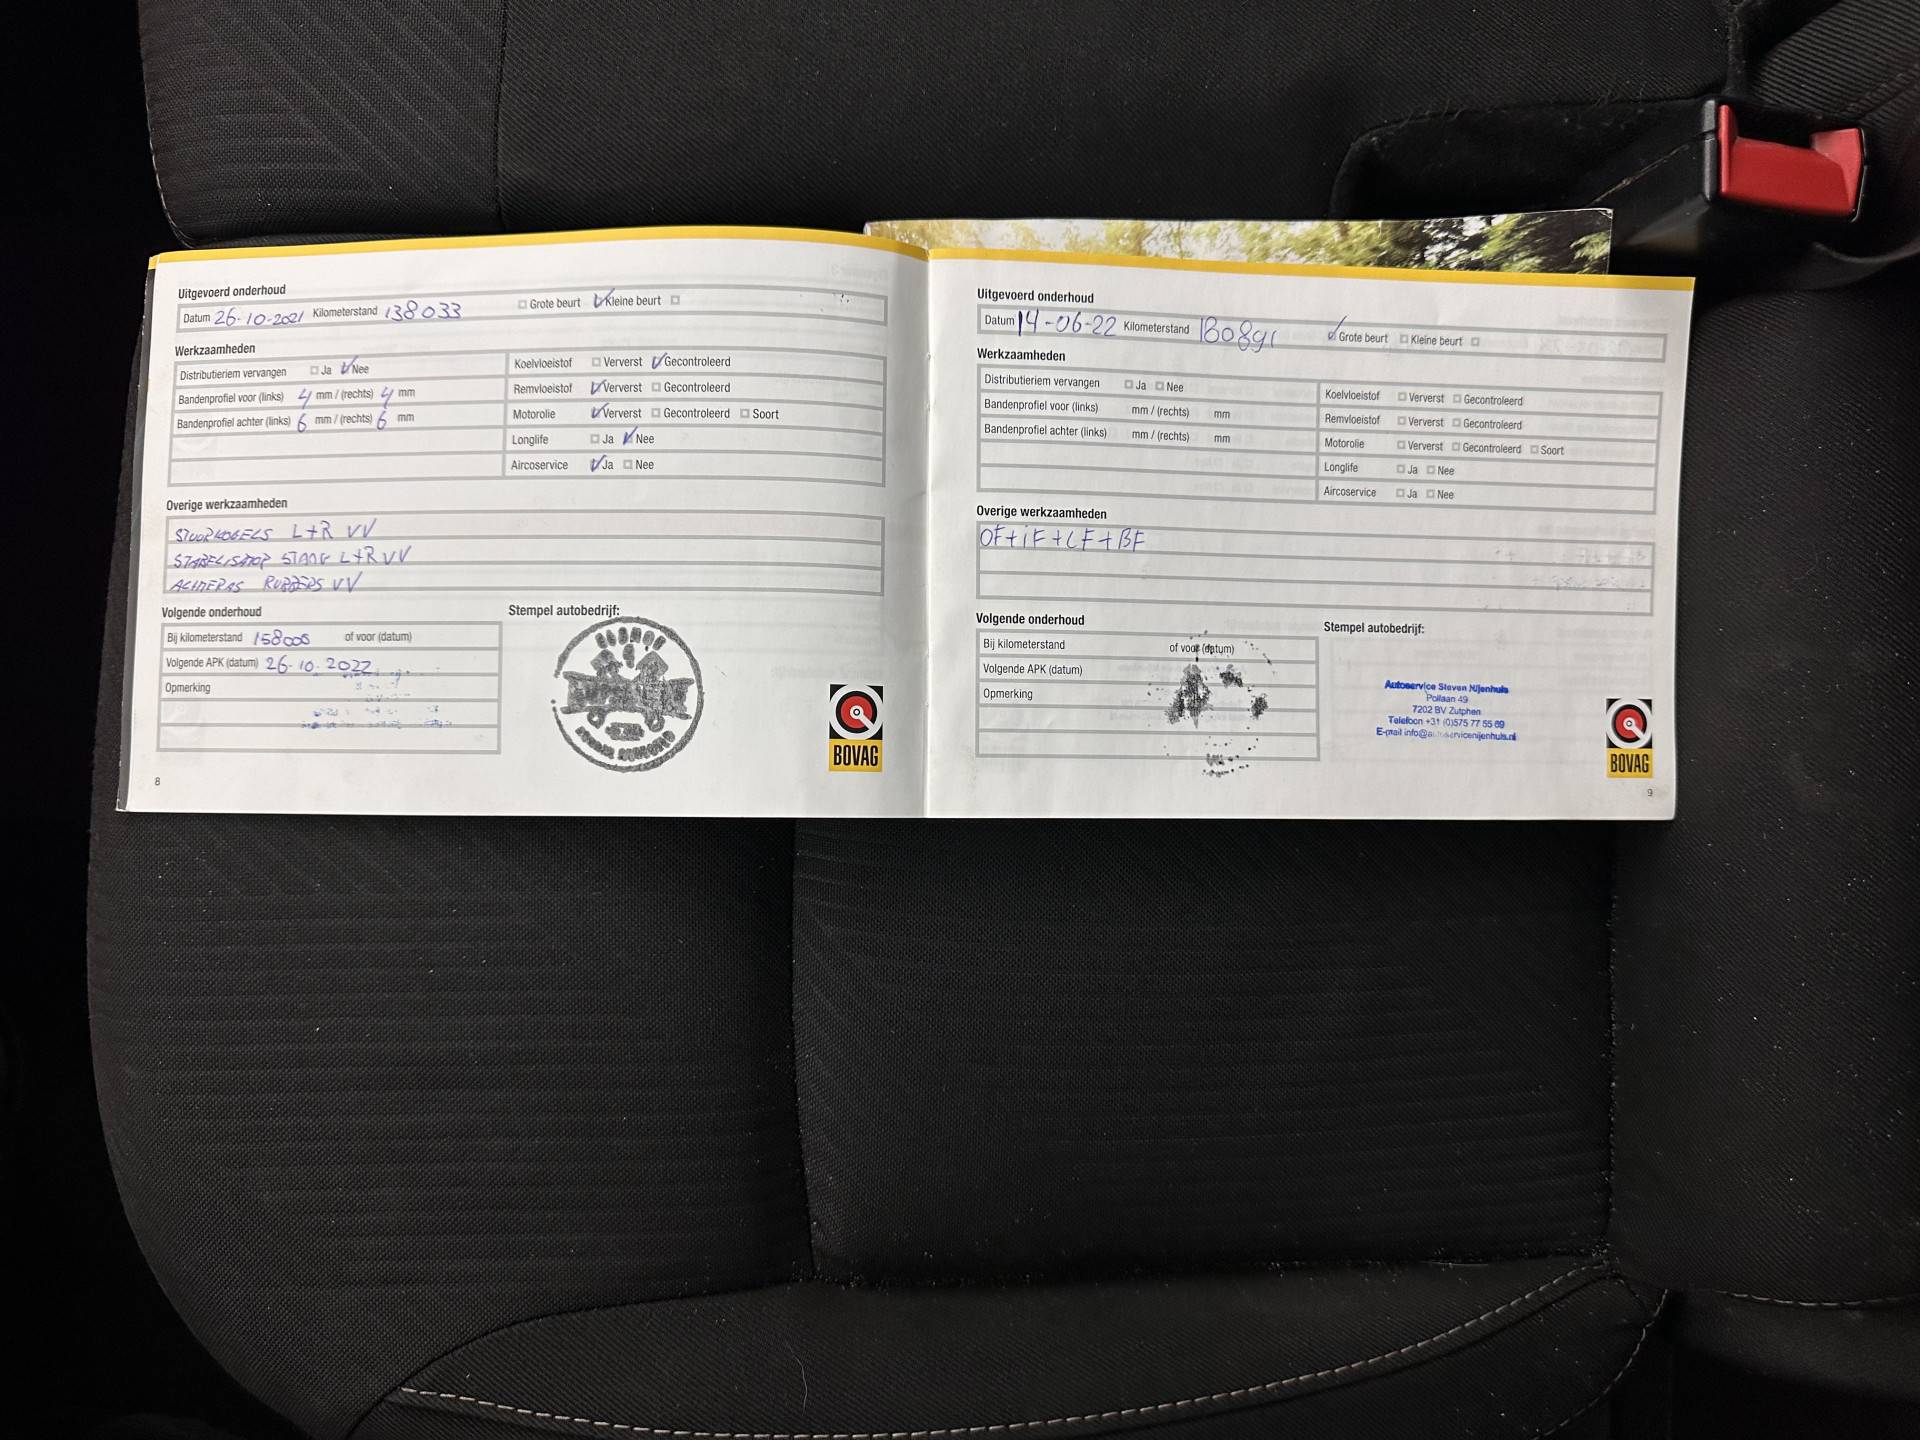 Uitgevoerd onderhoud
Datum 26-10-2021 Kilometerstand 138033 Grote beurt Kleine beurt
Werkzaamheden
Distributieriem vervangen Ja Nee
Bandenprofiel voor (links) 4 mm / (rechts) 4 mm
Bandenprofiel achter (links) 6 mm / (rechts) 6 mm
Koelvloeistof Ververst Gecontroleerd
Remvloeistof Ververst Gecontroleerd
Motorolie Ververst Gecontroleerd Soort
Longlife Ja Nee
Aircoservice Ja Nee
Overige werkzaamheden
STUURKOGELS L+R VV
STABELISATOR STANG L+R VV
ACHTERAS RUBBERS VV
Volgende onderhoud
Bij kilometerstand 158000 of voor (datum)
Volgende APK (datum) 26-10-2022
Opmerking
Stempel autobedrijf:
BOVAG
8
Uitgevoerd onderhoud
Datum 14-06-22 Kilometerstand Grote beurt Kleine beurt
Werkzaamheden
Distributieriem vervangen Ja Nee
Bandenprofiel voor (links) mm / (rechts) mm
Bandenprofiel achter (links) mm / (rechts) mm
Koelvloeistof Ververst Gecontroleerd
Remvloeistof Ververst Gecontroleerd
Motorolie Ververst Gecontroleerd Soort
Longlife Ja Nee
Aircoservice Ja Nee
Overige werkzaamheden
OF+iF+LF+BF
Volgende onderhoud
Bij kilometerstand of voor (datum)
Volgende APK (datum)
Opmerking
Stempel autobedrijf:
Autoservice Steven Nijenhuis
Pollaan 49
7202 BV Zutphen
Telefoon +31 (0)575 77 55 69
E-mail info@autoservicenijenhuis.nl
BOVAG
9